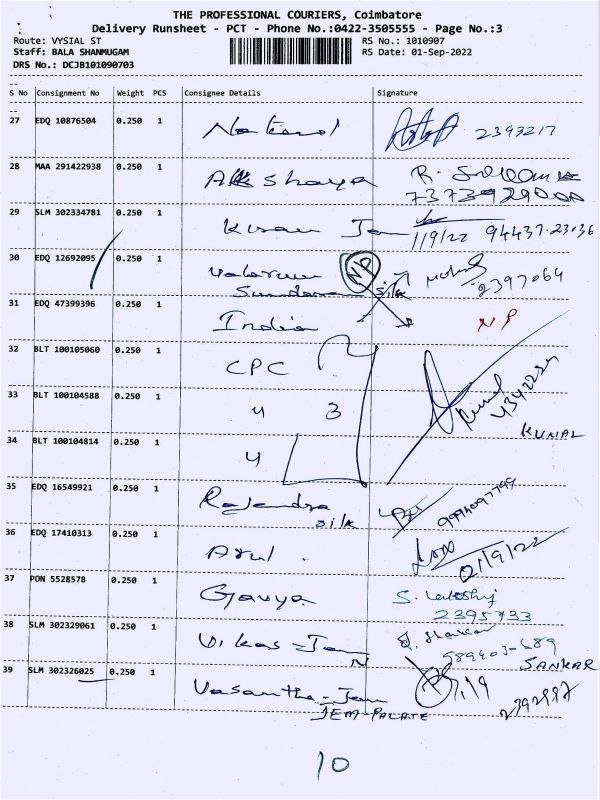 THE PROFESSIONAL COURIERS, Coimbatore
Delivery Runsheet - PCT - Phone No.:0422-3505555 - Page No.:3
Route: VYSIAL ST
RS No.: 1010907
Staff: BALA SHANMUGAM
RS Date: 01-Sep-2022
DRS No.: DCJB101090703
S No Consignment No Weight PCS Consignee Details Signature
27 EDQ 10876504 0.250 1 National 2393217
28 MAA 291422938 0.250 1 Akshaya R.
29 SLM 302334781 0.250 1 Kiran Jam
1/9/22 94437.23136
30 EDQ 12692095 0.250 1 NP
Sundara silk 2397064
31 EDQ 47399396 0.250 1 India NP
32 BLT 100105060 0.250 1 CPC
33 BLT 100104588 0.250 1 " 3 4342225
KUNAL
34 BLT 100104814 0.250 1 "
35 EDQ 16549921 0.250 1 Rajendra
silk
36 EDQ 17410313 0.250 1 Arul.
01/9/22
37 PON 5528578 0.250 1 Gavya S.
2395733
38 SLM 302329061 0.250 1 Vikas-Jam
N SANKAR
39 SLM 302326025 0.250 1 Vasantha-Jem
JEM-PALATE
10